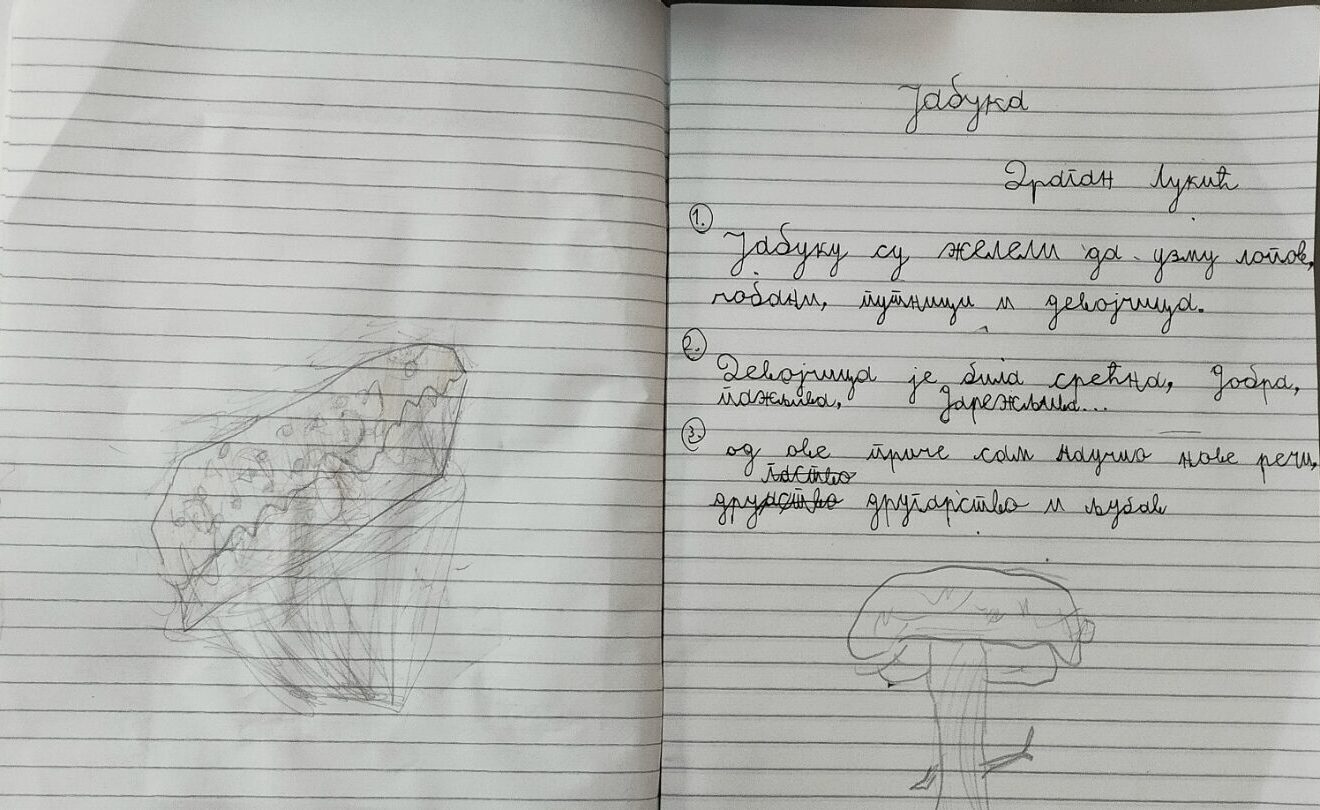 Јабука
Драган Лукић
1.
Јабуку су желели да узму лопов,
чобани, путници и девојчица.
2.
Девојчица је била срећна, добра,
пажљива, дарежљива...
3.
од ове приче сам научио нове речи,
другарство и љубав